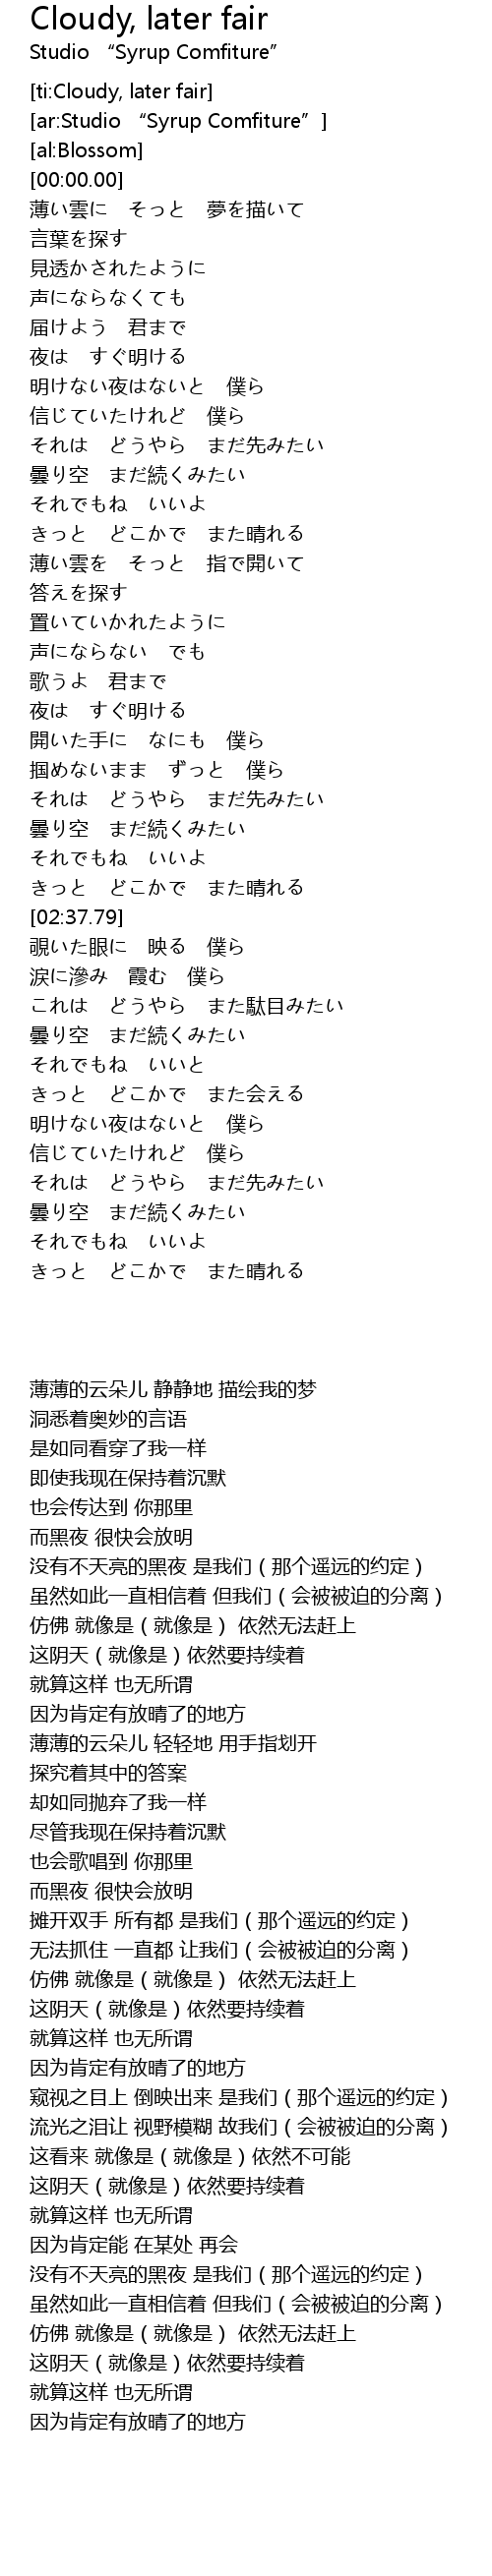 Cloudy, later fair
Studio “Syrup Comfiture”
[ti:Cloudy, later fair]
[ar:Studio “Syrup Comfiture” ]
[al:Blossom]
[00:00.00]
薄い雲に　そっと　夢を描いて
言葉を探す
見透かされたように
声にならなくても
届けよう　君まで
夜は　すぐ明ける
明けない夜はないと　僕ら
信じていたけれど　僕ら
それは　どうやら　まだ先みたい
曇り空　まだ続くみたい
それでもね　いいよ
きっと　どこかで　また晴れる
薄い雲を　そっと　指で開いて
答えを探す
置いていかれたように
声にならない　でも
歌うよ　君まで
夜は　すぐ明ける
開いた手に　なにも　僕ら
掴めないまま　ずっと　僕ら
それは　どうやら　まだ先みたい
曇り空　まだ続くみたい
それでもね　いいよ
きっと　どこかで　また晴れる
[02:37.79]
覗いた眼に　映る　僕ら
涙に滲み　霞む　僕ら
これは　どうやら　また駄目みたい
曇り空　まだ続くみたい
それでもね　いいと
きっと　どこかで　また会える
明けない夜はないと　僕ら
信じていたけれど　僕ら
それは　どうやら　まだ先みたい
曇り空　まだ続くみたい
それでもね　いいよ
きっと　どこかで　また晴れる
薄薄的云朵儿 静静地 描绘我的梦
洞悉着奥妙的言语
是如同看穿了我一样
即使我现在保持着沉默
也会传达到 你那里
而黑夜 很快会放明
没有不天亮的黑夜 是我们 ( 那个遥远的约定 )
虽然如此一直相信着 但我们 ( 会被被迫的分离 )
仿佛 就像是 ( 就像是 )  依然无法赶上
这阴天 ( 就像是 ) 依然要持续着
就算这样 也无所谓
因为肯定有放晴了的地方
薄薄的云朵儿 轻轻地 用手指划开
探究着其中的答案
却如同抛弃了我一样
尽管我现在保持着沉默
也会歌唱到 你那里
而黑夜 很快会放明
摊开双手 所有都 是我们 ( 那个遥远的约定 )
无法抓住 一直都 让我们 ( 会被被迫的分离 )
仿佛 就像是 ( 就像是 )  依然无法赶上
这阴天 ( 就像是 ) 依然要持续着
就算这样 也无所谓
因为肯定有放晴了的地方
窥视之目上 倒映出来 是我们 ( 那个遥远的约定 )
流光之泪让 视野模糊 故我们 ( 会被被迫的分离 )
这看来 就像是 ( 就像是 ) 依然不可能
这阴天 ( 就像是 ) 依然要持续着
就算这样 也无所谓
因为肯定能 在某处 再会
没有不天亮的黑夜 是我们 ( 那个遥远的约定 )
虽然如此一直相信着 但我们 ( 会被被迫的分离 )
仿佛 就像是 ( 就像是 )  依然无法赶上
这阴天 ( 就像是 ) 依然要持续着
就算这样 也无所谓
因为肯定有放晴了的地方